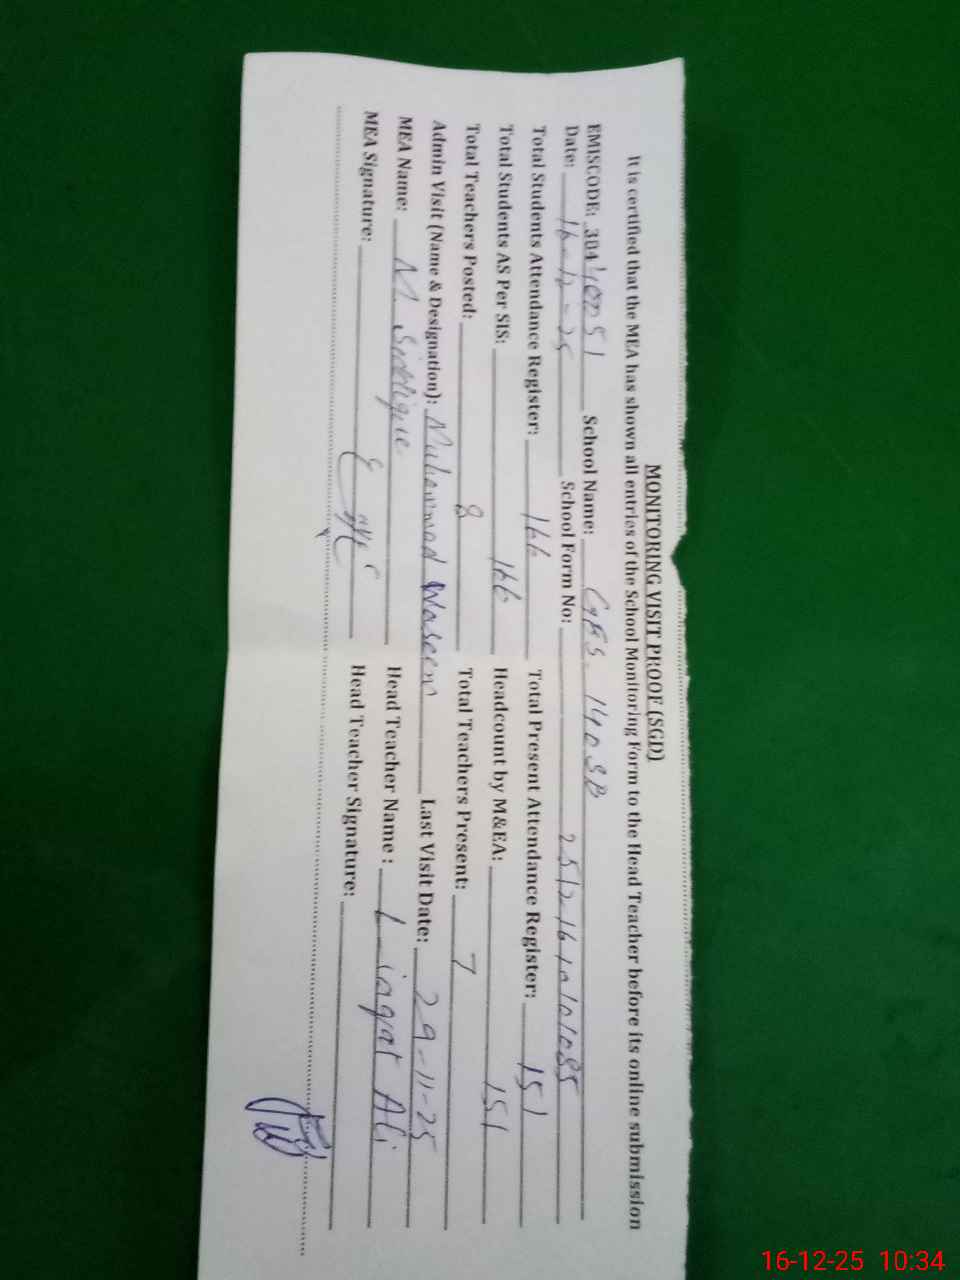 MONITORING VISIT PROOF (SGD)
It is certified that the MEA has shown all entries of the School Monitoring Form to the Head Teacher before its online submission
EMISCODE: 38440051 School Name: GES 140 SB
Date: 16-12-25 School Form No: 25121610101085
Total Students Attendance Register: 166 Total Present Attendance Register: 151
Total Students AS Per SIS: 166 Headcount by M&EA: 151
Total Teachers Posted: 8 Total Teachers Present: 7
Admin Visit (Name & Designation): Muhammad Waseem Last Visit Date: 29-11-25
MEA Name: M Siddique Head Teacher Name : Liaqat Ali
MEA Signature: Head Teacher Signature:
16-12-25 10:34